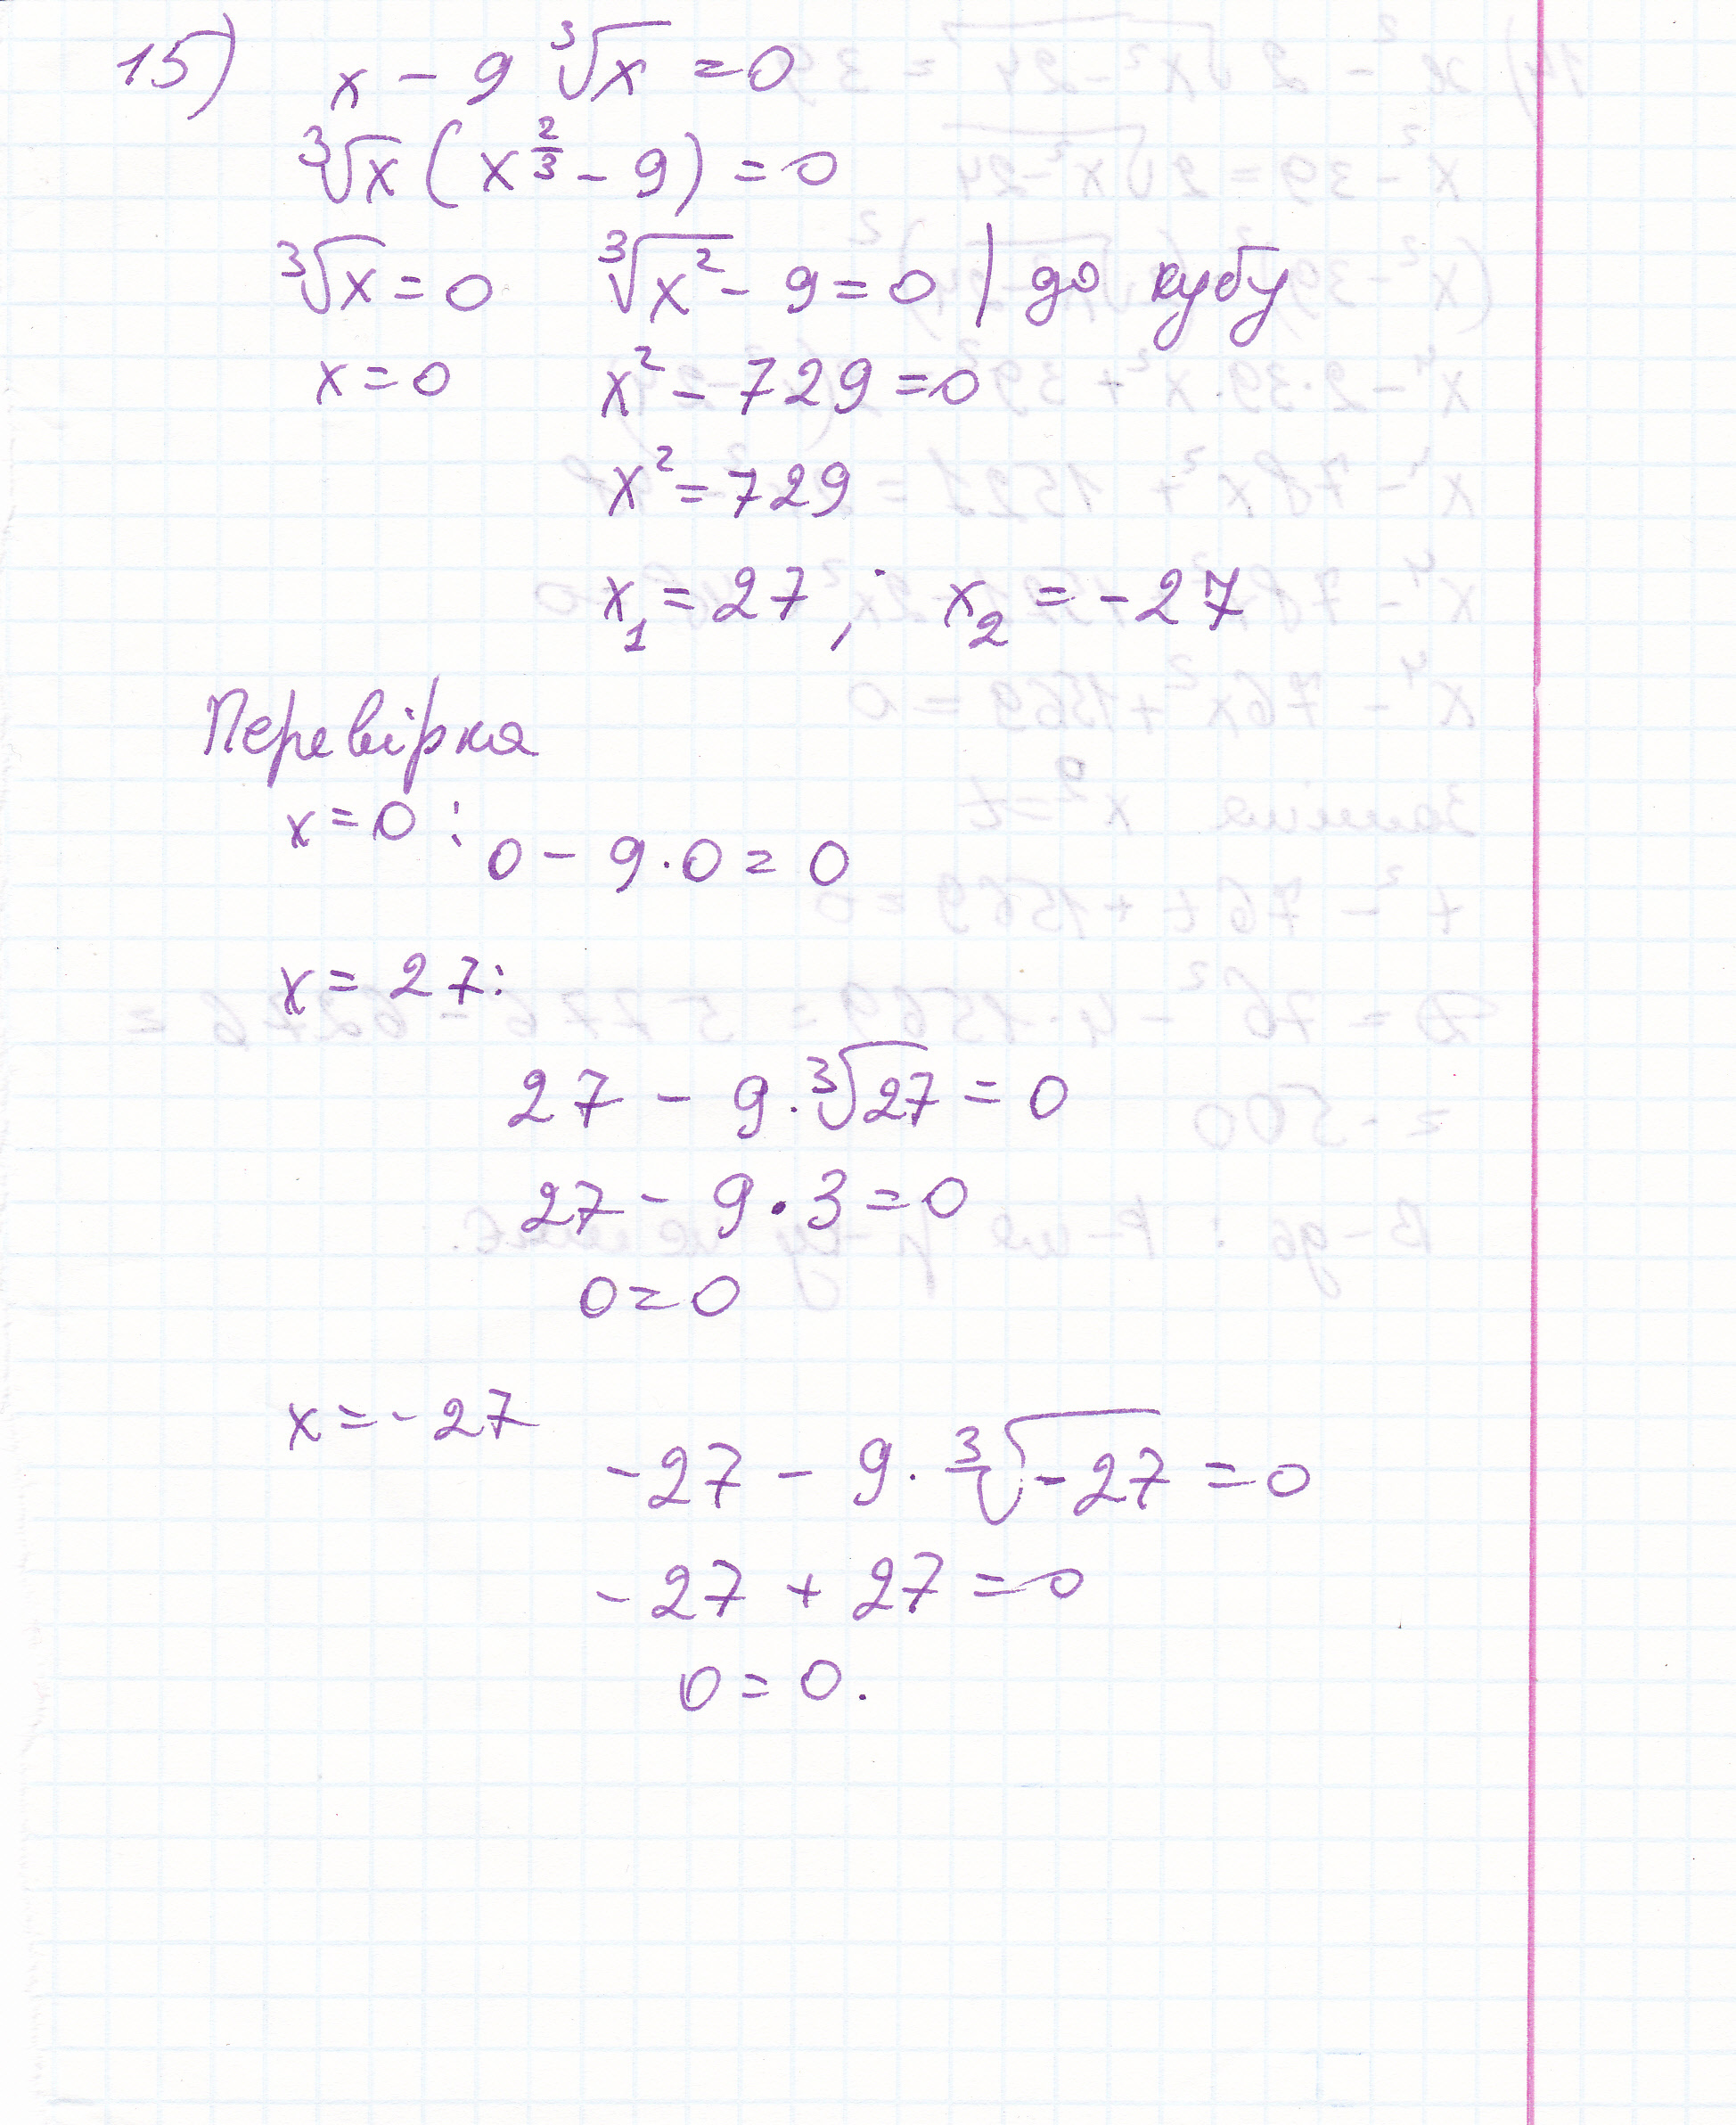 15) x - 9 ∛x = 0
∛x (x^(2/3) - 9) = 0
∛x = 0 ∛x² - 9 = 0 | до кубу
x = 0 x² - 729 = 0
x² = 729
x₁ = 27 ; x₂ = -27
Перевірка
x = 0 :
0 - 9 · 0 = 0
x = 27 :
27 - 9 · ∛27 = 0
27 - 9 · 3 = 0
0 = 0
x = -27
-27 - 9 · ∛-27 = 0
-27 + 27 = 0
0 = 0.